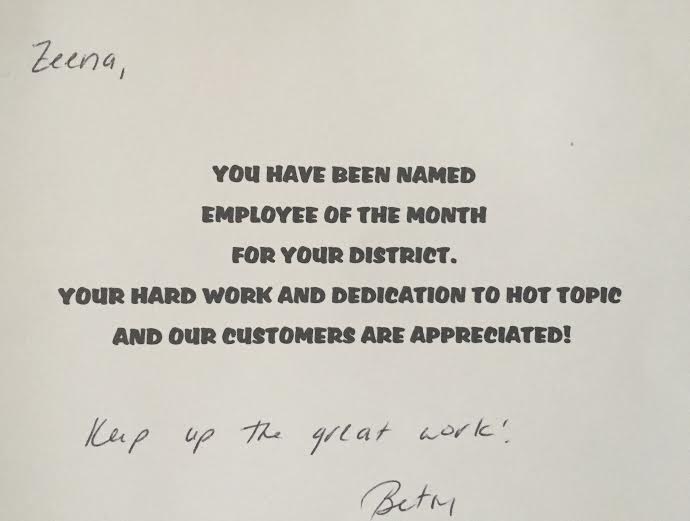 Zeena,
YOU HAVE BEEN NAMED
EMPLOYEE OF THE MONTH
FOR YOUR DISTRICT.
YOUR HARD WORK AND DEDICATION TO HOT TOPIC
AND OUR CUSTOMERS ARE APPRECIATED!
Keep up the great work!